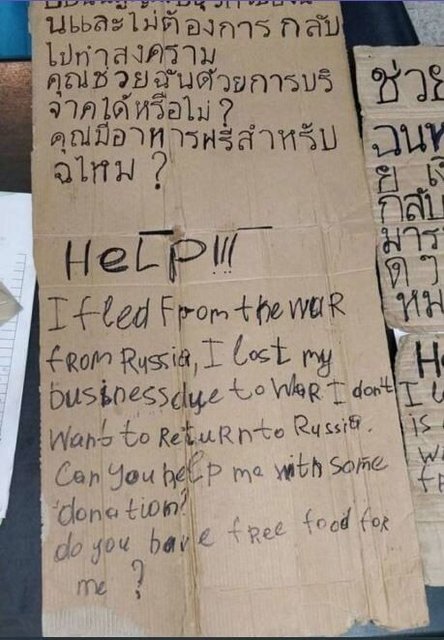 นและไม่ต้องการ กลับ
ไปทำสงคราม
คุณช่วยฉันด้วยการบริ
จาคได้หรือไม่?
คุณมีอาหารฟรีสำหรับ
ฉไหม ?
HeLP!!!
I fled From the WAR
fRom Russia, I lost my
business due to WaR I don't
Want to RetuRn to Russia.
Can you help me with some
donation?
do you have fRee food foR
me ?
ช่วย
ฉัน
กลับ
มาร
ดๆ
หม
H
I
is